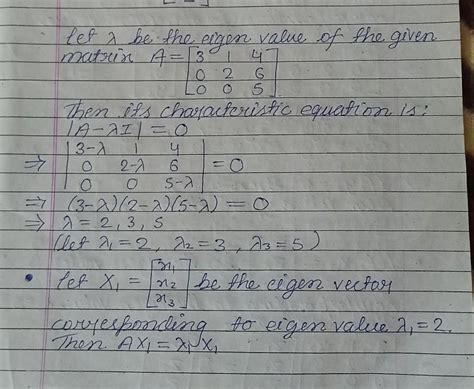 Let λ be the eigen value of the given
matrix A = [3 1 4
0 2 6
0 0 5]
Then its characteristic equation is:
|A-λI| = 0
⇒ |3-λ 1 4
0 2-λ 6
0 0 5-λ| = 0
⇒ (3-λ)(2-λ)(5-λ) = 0
⇒ λ = 2, 3, 5
(let λ₁ = 2, λ₂ = 3, λ₃ = 5)
• Let X₁ = [x₁
x₂
x₃] be the eigen vector
corresponding to eigen value λ₁ = 2.
Then AX₁ = λ₁X₁